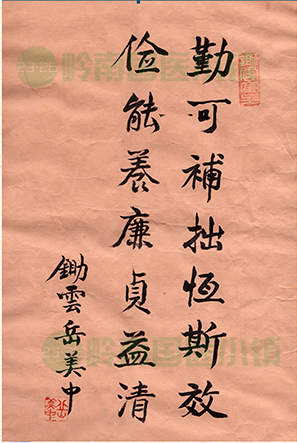 勤可補拙恆斯效
俭能養廉貞益清
鋤雲岳美中